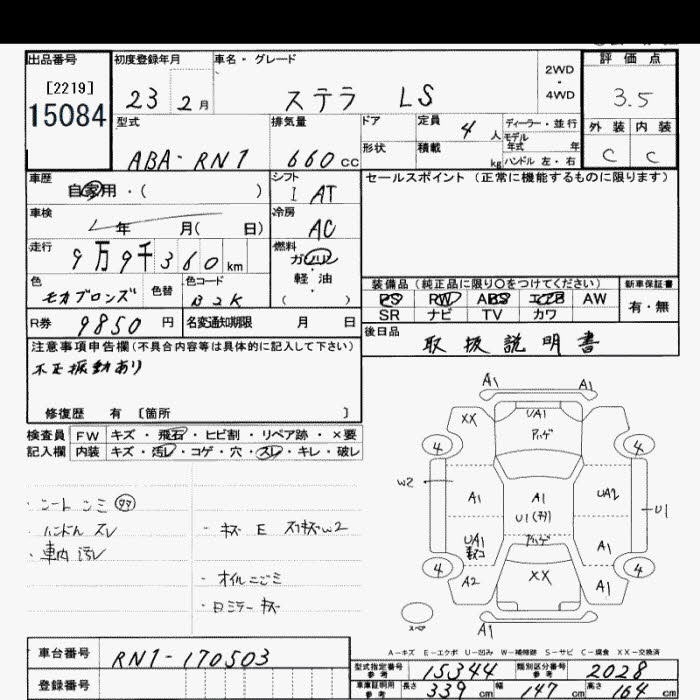 出品番号 初度登録年月 車名・グレード 評価点
[2219] 2WD ・ 4WD
15084 23 2月 ステラ LS 3.5
型式 排気量 ドア 定員 4人 ディーラー・並行 外装 内装
モデル年式 年
ABA-RN1 660cc 形状 積載 kg ハンドル 左・右 C C
車歴 自家用・( ) シフト I AT セールスポイント(正常に機能するものに限ります)
車検 年 月( 日) 冷房 AC
走行 9万9千360km 燃料 ガソリン
色 モカブロンズ 色替 色コード 軽油 ( ) 装備品(純正品に限り○をつけてください) 新車保証書
PS RW ABS エアB AW 有・無
SR ナビ TV カワ
R券 9850円 名変通知期限 月 日 後日品 取扱説明書
注意事項申告欄(不具合内容等は具体的に記入して下さい)
不正振動あり
修復歴 有 [箇所 ]
検査員 FW キズ・飛石・ヒビ割・リペア跡・×要
記入欄 内装 キズ・汚レ・コゲ・穴・スレ・キレ・破レ
・ハンドル スレ
・車内 汚レ
・オイルニジミ
A1 A1
XX UA1
4 4
W2 A1 A1 UA2
U1
UA1 A1
4 4
A2 XX A1
A1
A-キズ E-エクボ U-凹み W-補修跡 S-サビ C-腐食 XX-交換済
車台番号 RN1-170503
型式指定番号 参考 15344 類別区分番号 参考 2028
登録番号 車庫証明用 参考 長さ 339cm 幅 147cm 高さ 164cm